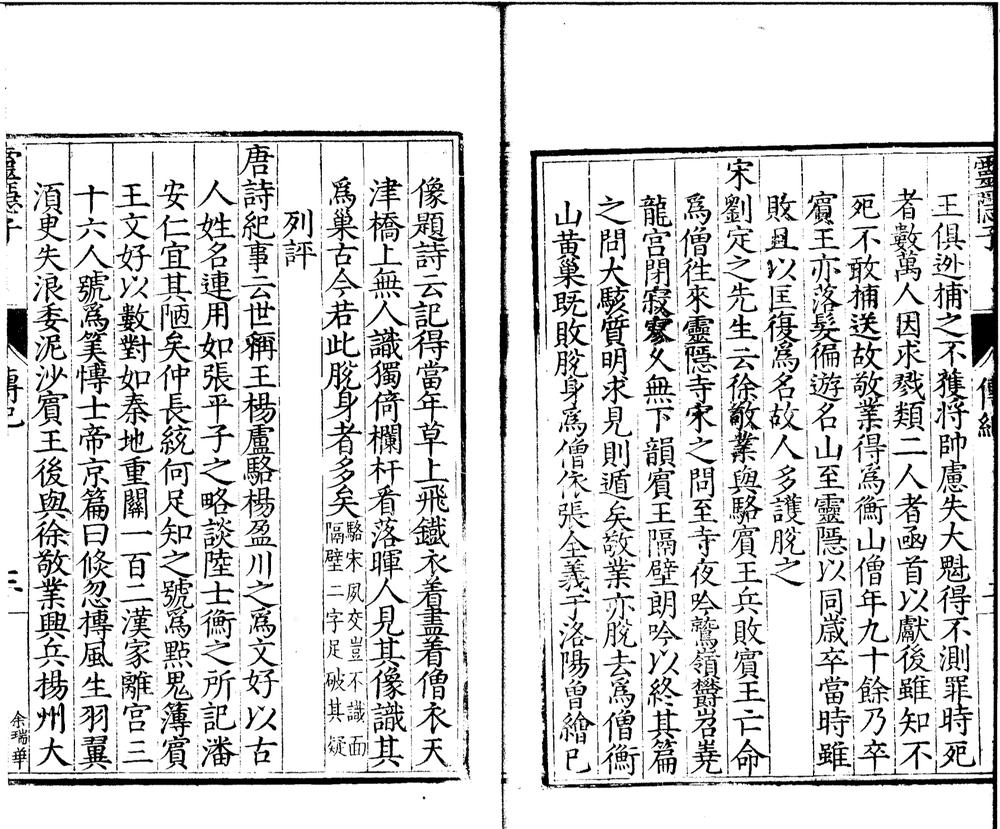 靈隱子
傳紀
王俱迯捕之不獲將帥慮失大魁得不測罪時死
者數萬人因求戮類二人者凾首以獻後雖知不
死不敢捕送故敬業得爲衡山僧年九十餘乃卒
賔王亦落髮徧遊名山至靈隱以同歳卒當時雖
敗且以匡復爲名故人多護脫之
宋劉定之先生云徐敬業與駱賔王兵敗賔王亡命
爲僧徃來靈隱寺宋之問至寺夜吟鷲嶺欝岧嶤
龍宫閉寂寥久無下韻賔王隔壁朗吟以終其篇
之問大駭質明求見則遁矣敬業亦脫去爲僧衡
山黄巢旣敗脫身爲僧依張全義于洛陽曽繪巳
像題詩云記得當年草上飛鐵衣着盡着僧衣天
津橋上無人識獨倚欄杆看落暉人見其像識其
爲巢古今若此脫身者多矣駱宋夙交豈不識面
隔壁二字足破其疑
列評
唐詩紀事云世稱王楊盧駱楊盈川之爲文好以古
人姓名連用如張平子之略談陸士衡之所記潘
安仁宜其陋矣仲長統何足知之號爲㸃鬼簿賔
王文好以數對如秦地重關一百二漢家離宫三
十六人號爲筭愽士帝京篇曰倐忽摶風生羽翼
湏臾失浪委泥沙賔王後與徐敬業興兵揚州大
靈隱子
傳記
余瑞華